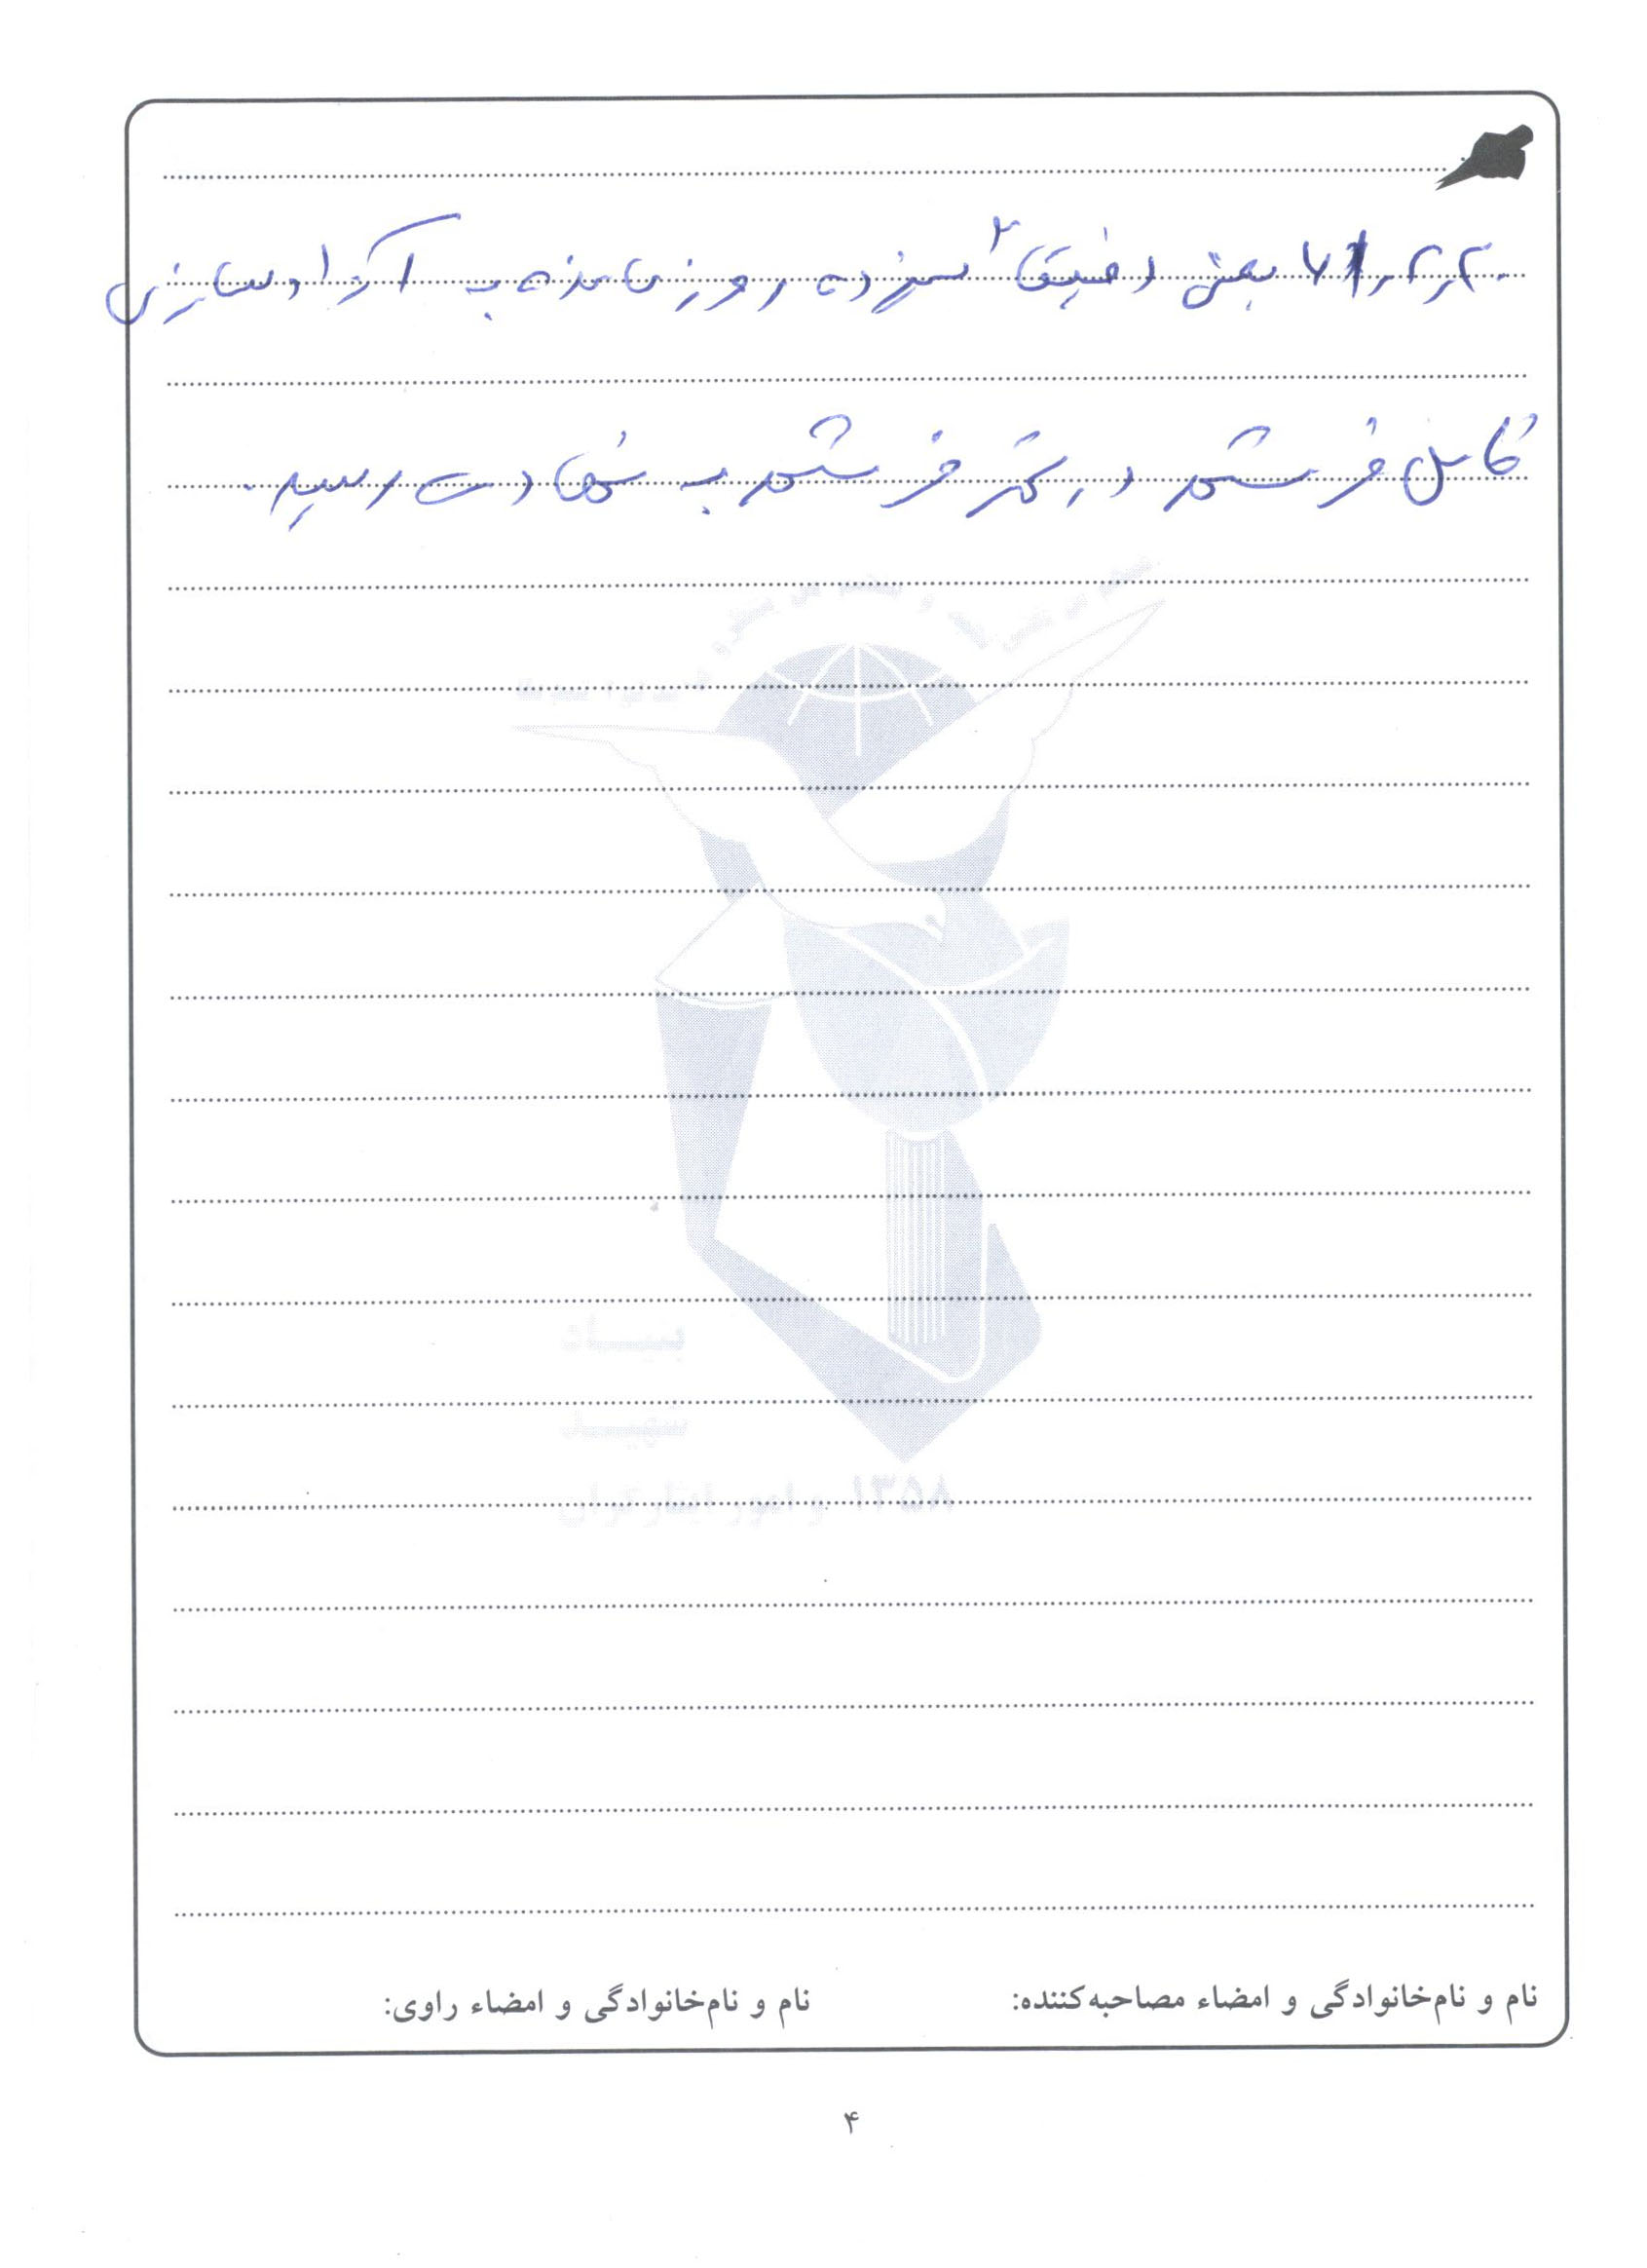 ۲۰ر۲ر۶۱ یعنی دقیقاً سیزده روز مانده به آزادسازی
کامل خرمشهر در خرمشهر به شهادت رسید.
بنیاد
شهید
و امور ایثارگران ۱۳۵۸
نام و نام‌خانوادگی و امضاء مصاحبه‌کننده: نام و نام‌خانوادگی و امضاء راوی:
۴